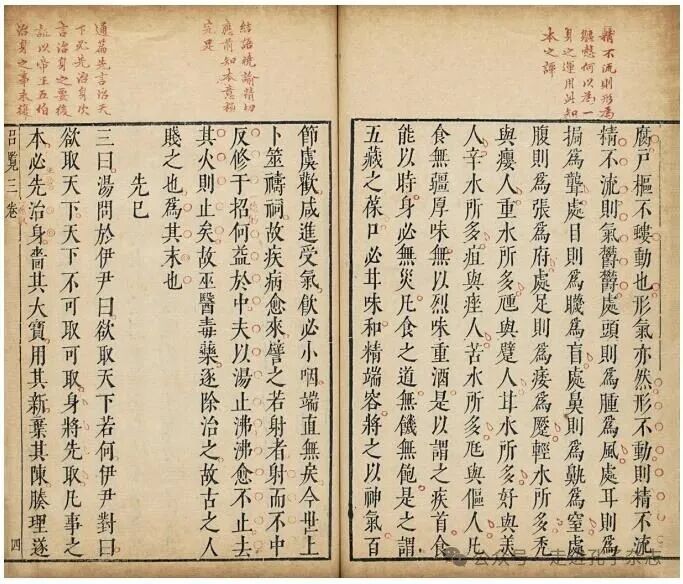 精不流則形為
何以為一
身之運用與知
本之譚
腐戶樞不螻動也形氣亦然形不動則精不流
精不流則氣鬱鬱處頭則爲腫爲風處耳則爲
挶爲聾處目則爲䁾爲盲處鼻則爲鼽爲窒處
腹則爲張爲府處足則爲痿爲蹷輕水所多禿
與癭人重水所多尰與躄人甘水所多好與美
人辛水所多疽與痤人苦水所多尫與傴人凡
食無疆厚味無以烈味重酒是以謂之疾首食
能以時身必無災凡食之道無饑無飽是之謂
五藏之葆口必甘味和精端容將之以神氣百
結語曉諭精切
應前知本意
完足
節虞歡咸進受氣飲必小咽端直無戾今世上
卜筮禱祠故疾病愈來譬之若射者射而不中
反修于招何益於中夫以湯止沸沸愈不止去
其火則止矣故巫醫毒藥逐除治之故古之人
賤之也爲其末也
先己
通篇先言治天
下必先治身次
言治身之要後
以帝王五伯
治身之事來
三曰湯問於伊尹曰欲取天下若何伊尹對曰
欲取天下天下不可取可取身將先取凡事之
本必先治身嗇其大寶用其新棄其陳腠理遂
呂覽三卷
四
公众号 · 走进孔子杂志